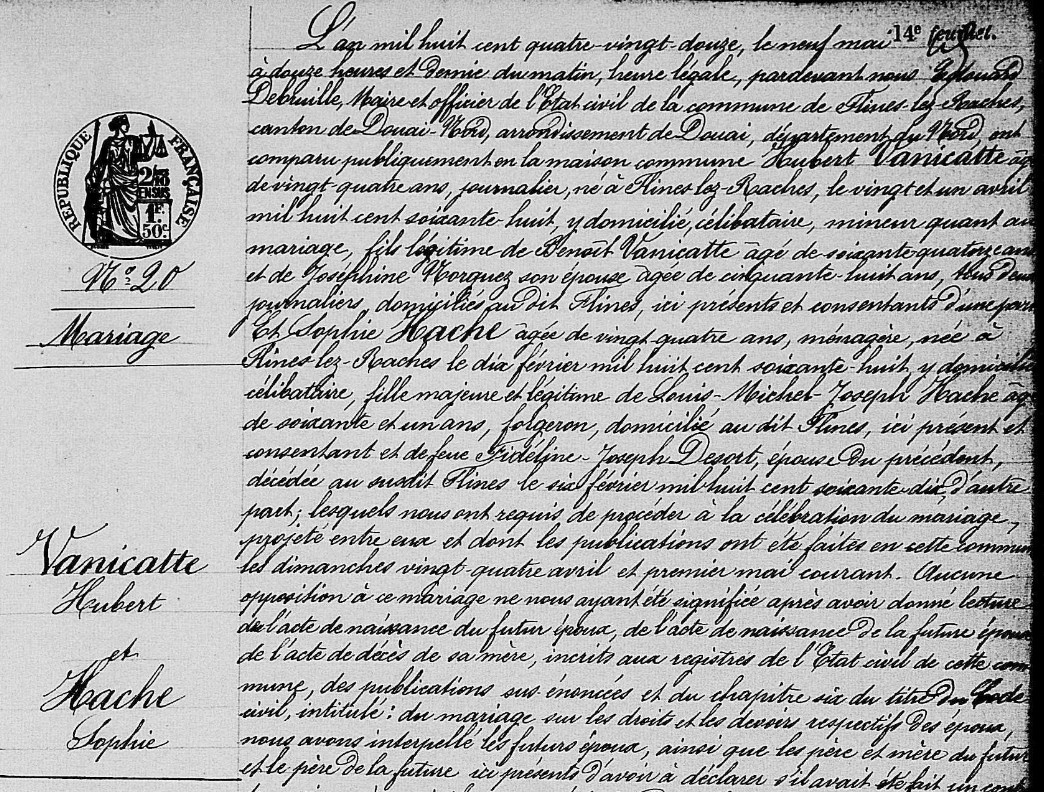 14e feuillet.
L'an mil huit cent quatre-vingt douze, le neuf mai
à douze heures et demie du matin, heure légale, pardevant nous Edouard
Debruille, Maire et officier de l'Etat civil de la commune de Flines-lez-Raches,
canton de Douai-Nord, arrondissement de Douai, département du Nord, ont
comparu publiquement en la maison commune Hubert Vanicatte âg
de vingt-quatre ans, journalier, né à Flines lez-Raches, le vingt et un avril
mil huit cent soixante-huit, y domicilié, célibataire, mineur quant au
mariage, fils légitime de Benoît Vanicatte âgé de soixante-quatorze ans
et de Joséphine Norguez son épouse âgée de cinquante-huit ans, tous deux
journaliers, domiciliés au dit Flines, ici présents et consentants d'une part
Et Sophie Hache âgée de vingt quatre ans, ménagère, née à
Flines lez-Raches le dix février mil huit cent soixante-huit, y domiciliée
célibataire, fille majeure et légitime de Louis-Michel-Joseph Hache âg
de soixante et un ans, forgeron, domicilié au dit Flines, ici présent et
consentant et de feue Fidéline-Joseph Desort, épouse du précédent,
décédée au susdit Flines le six février mil huit cent soixante-dix, d'autre
part; lesquels nous ont requis de procéder à la célébration du mariage
projeté entre eux et dont les publications ont été faites en cette commun
les dimanches vingt quatre avril et premier mai courant. Aucune
opposition à ce mariage ne nous ayant été signifiée après avoir donné lecture
de l'acte de naissance du futur époux, de l'acte de naissance de la future épouse
de l'acte de décès de sa mère, incrits aux registres de l'Etat civil de cette com
mune, des publications sus énoncées et du chapitre six du titre du Code
civil, intitulé: du mariage sur les droits et les devoirs respectifs des époux,
nous avons interpellé les futurs époux, ainsi que les père et mère du futur
et le père de la future ici présents d'avoir à déclarer s'il avait été fait un cont
REPUBLIQUE FRANÇAISE
EN SUS
1F.
50c.
N° 20
Mariage
Vanicatte
Hubert
et
Hache
Sophie